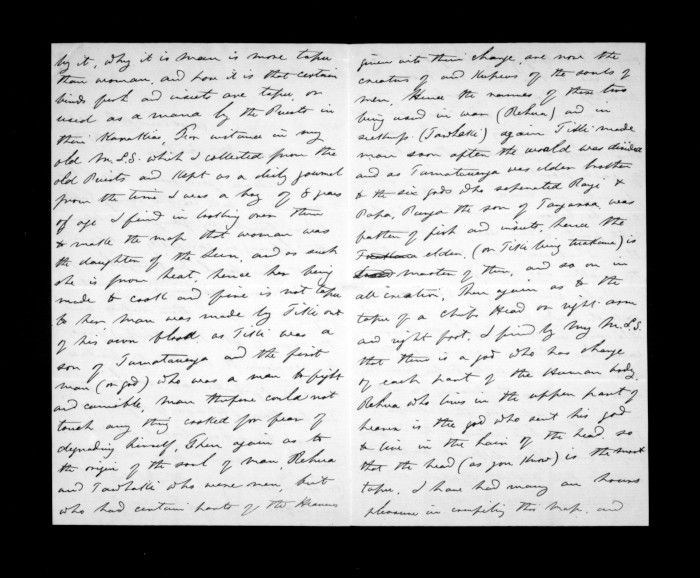 by it, why it is man is more tapu
than woman, and how it is that certain
birds fish and insects are tapu or
used as a mana by the Priests in
their Karakias, For instance in my
old M.S.S. which I collected from the
old Priests and kept as a daily journal
from the time I was a boy of 8 years
of age I find in looking over them
to make the map that woman was
the daughter of the Sun, and as such
she is from heat, hence her being
made to cook and fire is not tapu
to her. Man was made by Tiki out
of his own blood. as Tiki was a
son of Tumatauenga and the first
man (or god) who was a man to fight
and cannible, man therefore could not
touch any thing cooked for fear of
degrading himself, Then again as to
the origin of the soul of man. Rehua
and Tawhaki who were men, but
who had certain parts of the Heavens
given into their charge, are now the
creators of and Keepers of the souls of
men. Hence the names of these two
being used in war (Rehua) and in
sickness (Tawhaki) again Tiki made
man soon after the world was divided
and as Tumatauenga was elder brother
to the six gods who seperated Rangi &
Papa, Punga the son of Tangaroa was
father of fish and insects, hence the
elder, (or Tiki being tuakana) is
master of them, and so on in
all creation, Then again as to the
tapu of a chiefs Head or right arm
and right foot. I find by my M.S.S.
that there is a god who has charge
of each part of the Human body.
Rehua who lives in the uppen part of
heaven is the god who sent his god
to live in the hair of the head. so
that the head (as you know) is the most
tapu. I have had many an hours
pleasure in compiling this map, and